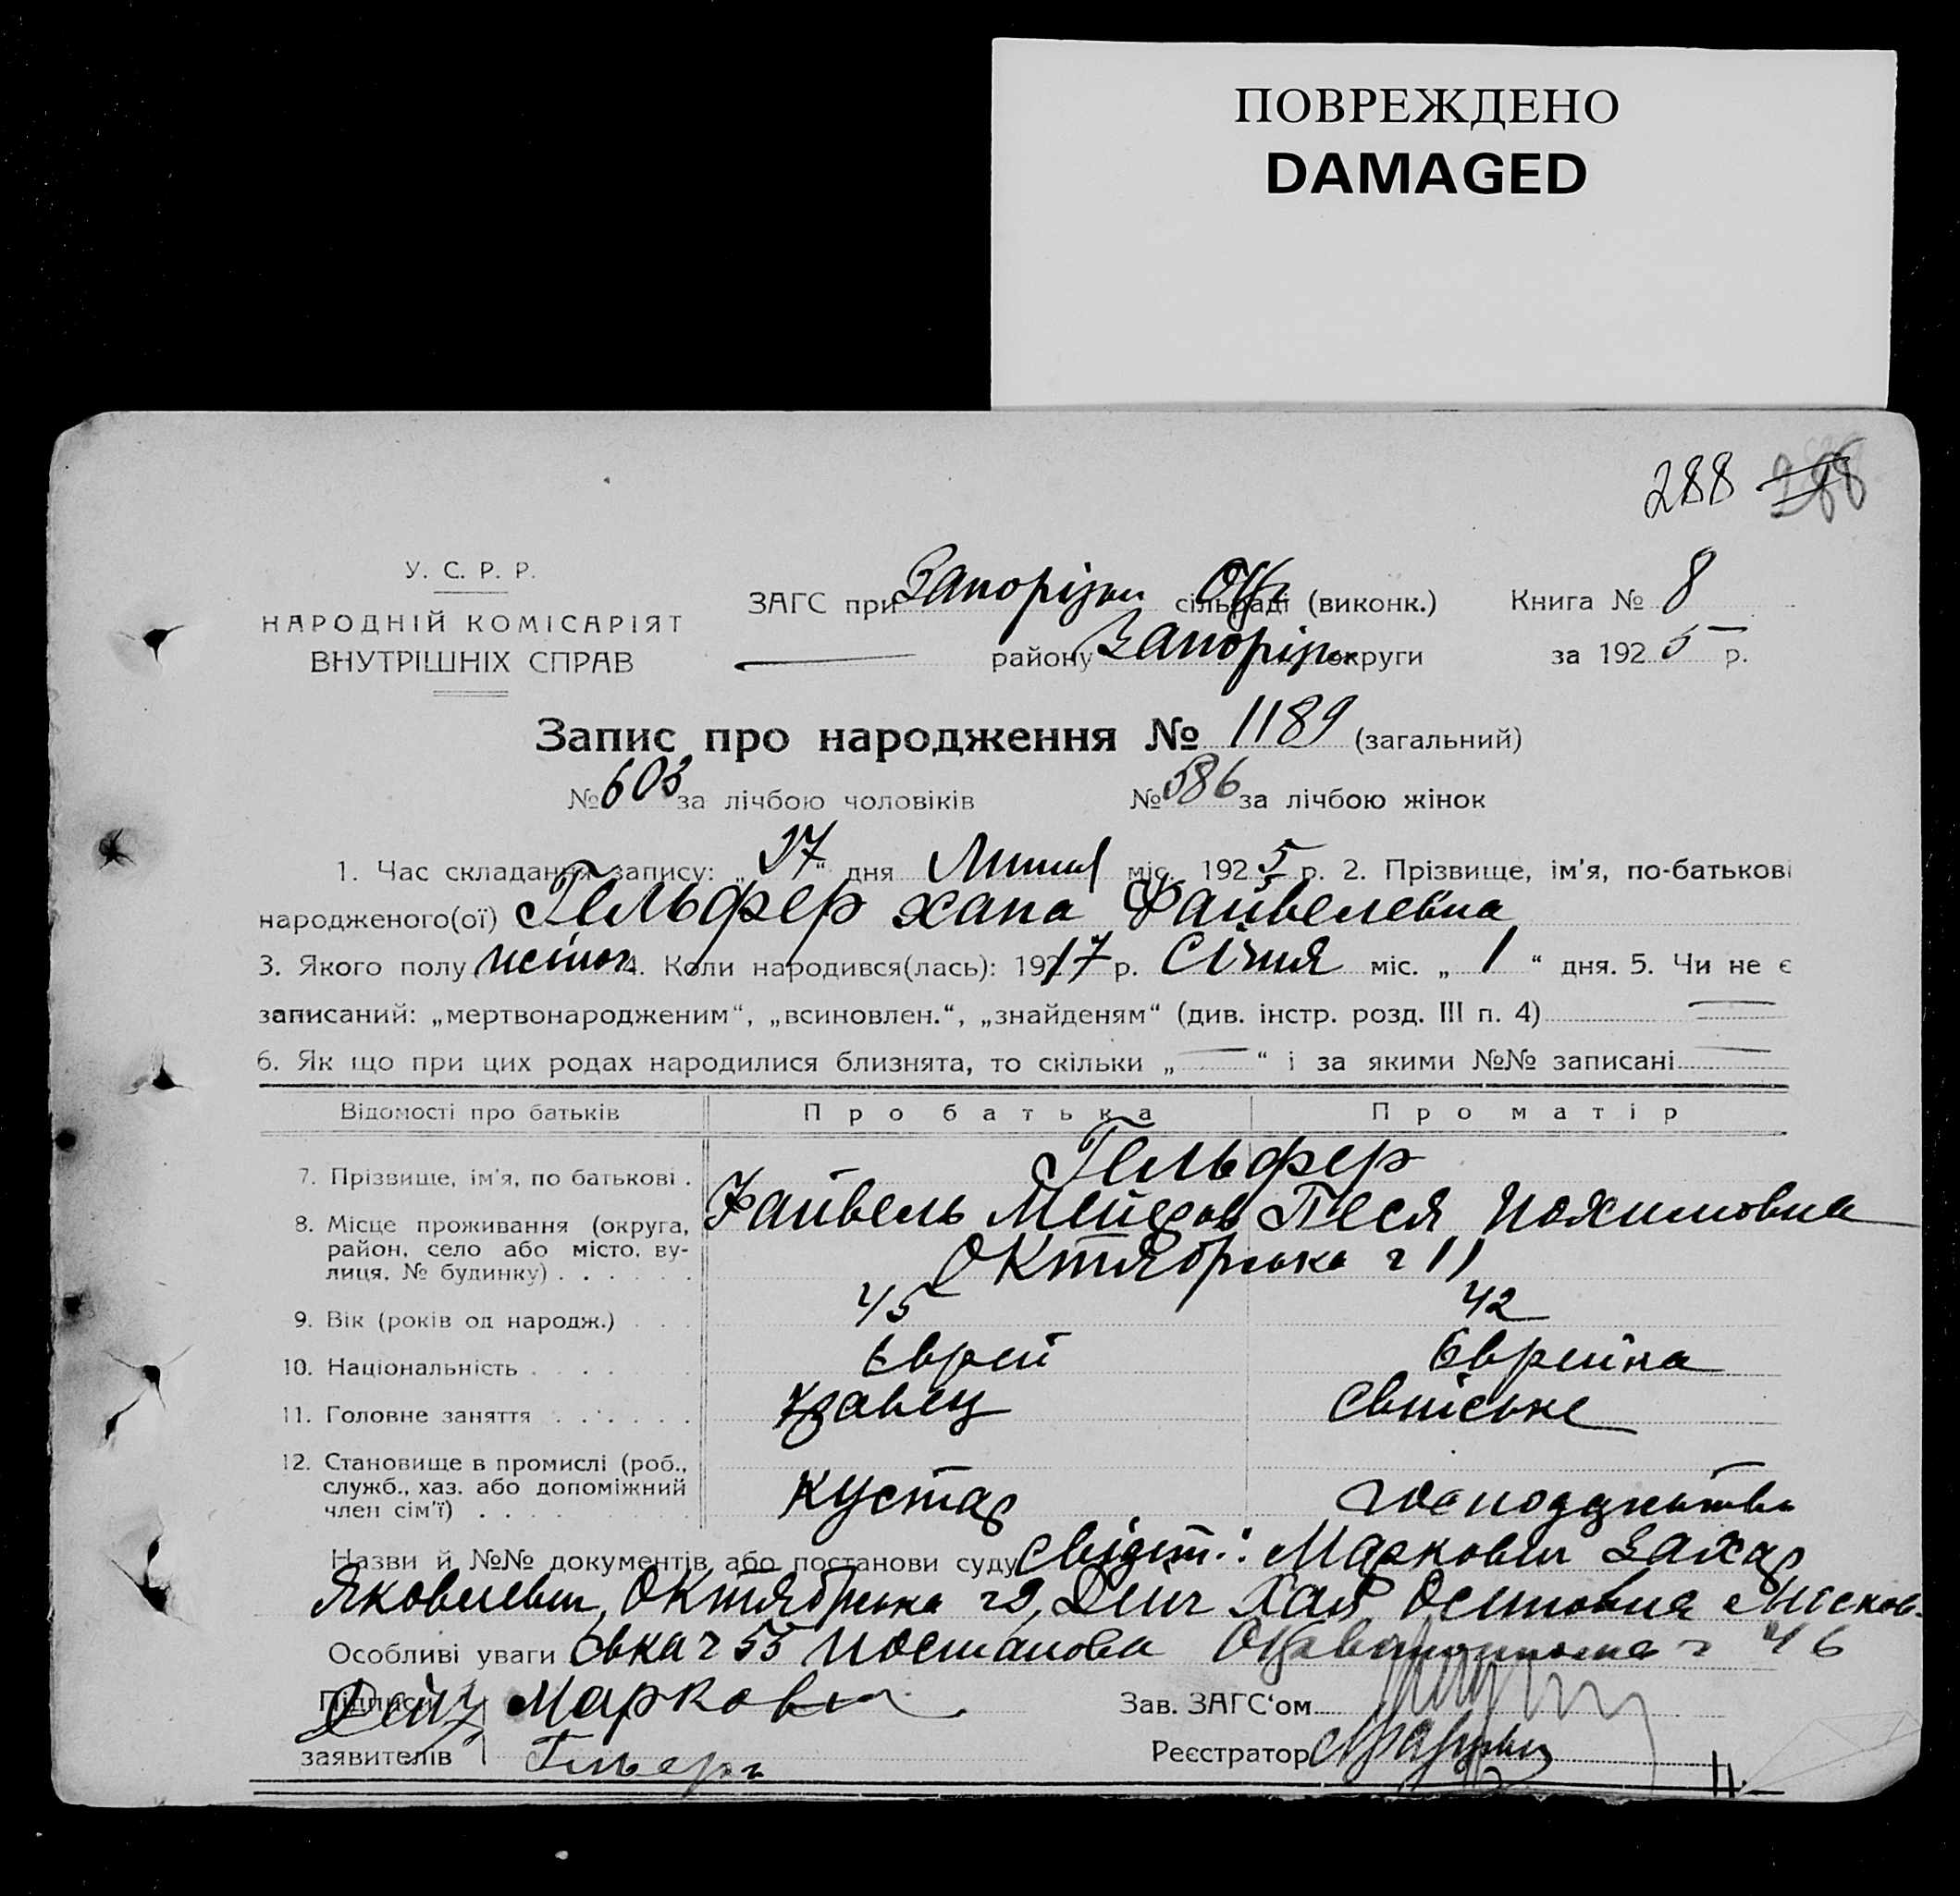 ПОВРЕЖДЕНО
DAMAGED
288 288
У. С. Р. Р.
НАРОДНІЙ КОМІСАРІЯТ
ВНУТРІШНІХ СПРАВ
ЗАГС при Запорізьк сільраді (виконк.) Книга № 8
району Запорізьк округи за 1925 р.
Запис про народження № 1189 (загальний)
№ 603 за лічбою чоловіків № 586 за лічбою жінок
1. Час складання запису: „ 17 “ дня Липня міс. 1925 р. 2. Прізвище, ім'я, по-батькові
народженого(ої) Гельфер Хана Файвелевна
3. Якого полу жіноч 4. Коли народився(лась): 1917 р. Січня міс. „ 1 “ дня. 5. Чи не є
записаний: „мертвонародженим“, „всиновлен.“, „знайденям“ (див. інстр. розд. III п. 4)
6. Як що при цих родах народилися близнята, то скільки „ — “ і за якими №№ записані —
Відомості про батьків Про батька Про матір
7. Прізвище, ім'я, по батькові . Гельфер
Файвель Мейеров Песя
8. Місце проживання (округа, район, село або місто, вулиця, № будинку) . . . . . . Октябрська ч 11
9. Вік (років од народж.) . . . 45 42
10. Національність . . . . . . Еврей Еврейка
11. Головне заняття . . . . . . Кравец Свійське
12. Становище в промислі (роб., служб., хаз. або допоміжний член сім'ї) . . . . Кустар господарство
Назви й №№ документів або постанови суду Свідот: Маркович Захар
Яковлевич, Октябрська ч 2, Дейч Хая Осиповна Москов-
Особливі уваги ська ч 55 постанова ч 46
Підписи Дейч Маркович Зав. ЗАГС'ом
заявителів Гельфер Реєстратор